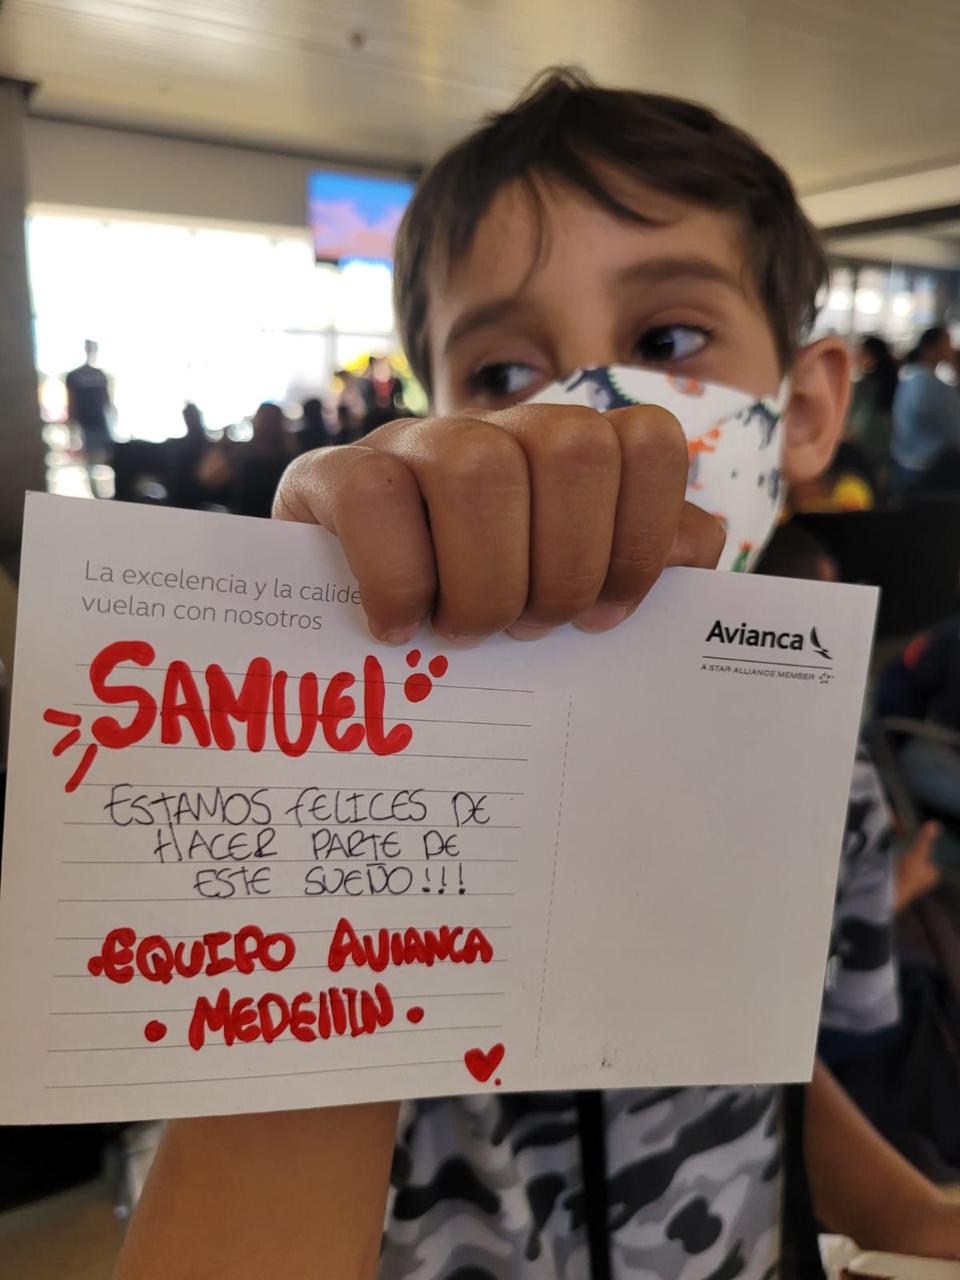 La excelencia y la calid
vuelan con nosotros
SAMUEL
ESTAMOS FELICES DE
HACER PARTE DE
ESTE SUEÑO!!!
EQUIPO AVIANCA
• MEDEllIN •
Avianca
A STAR ALLIANCE MEMBER